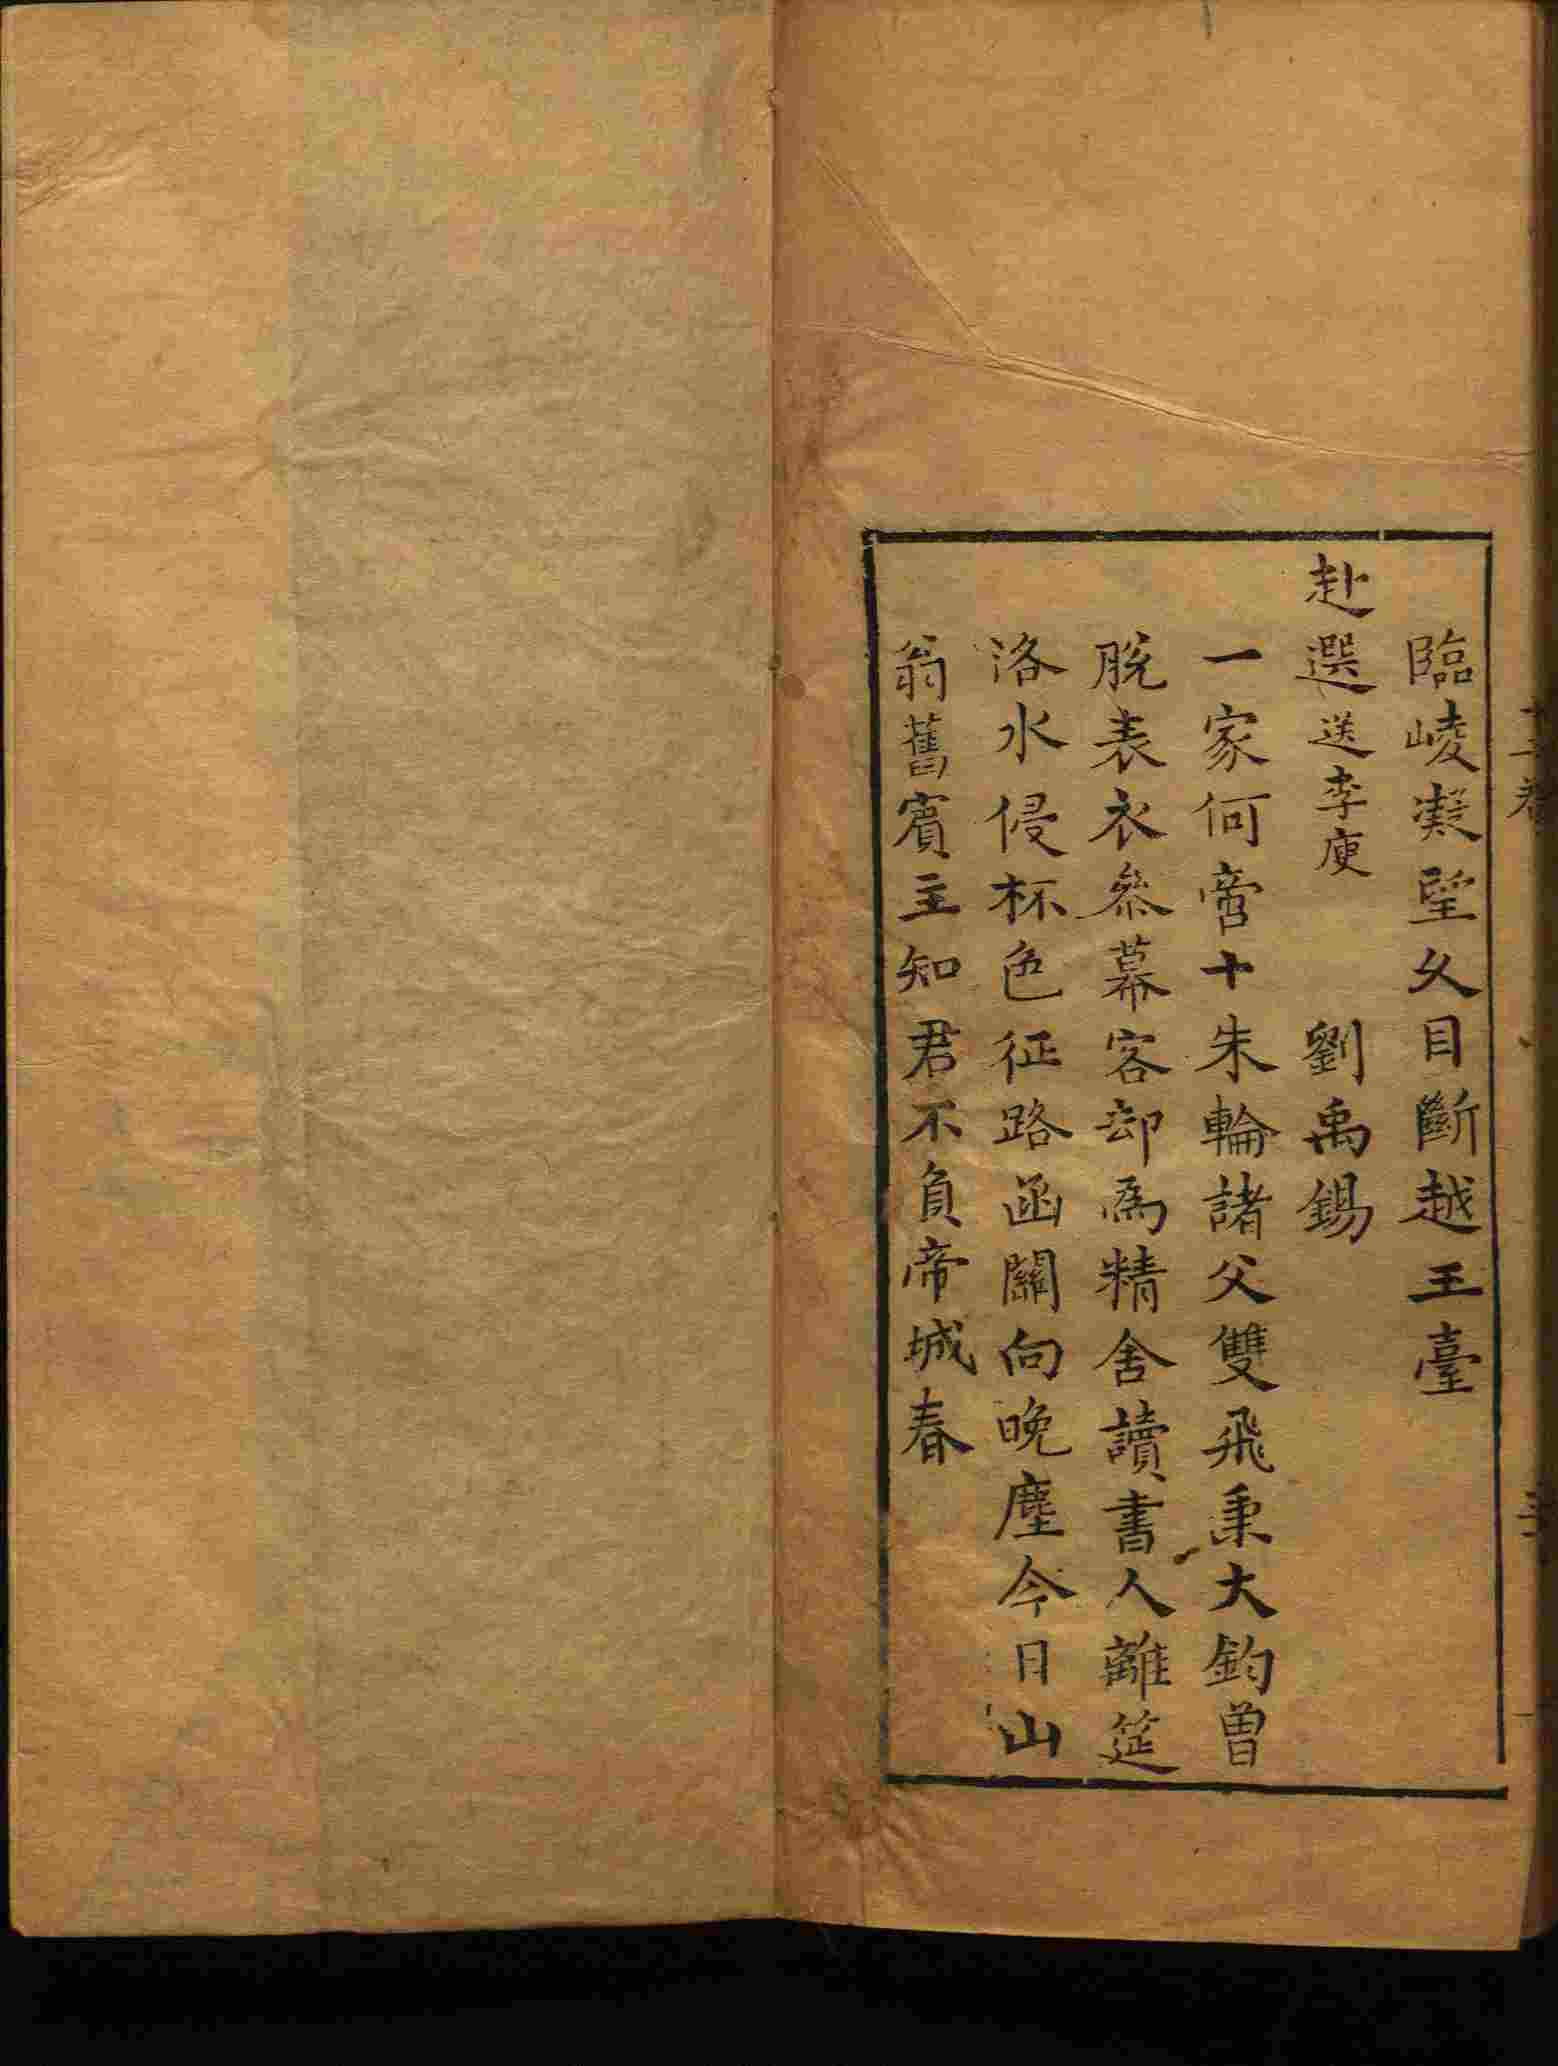 臨崚凝望久目斷越王臺
赴選送李庾 劉禹錫
一家何啻十朱輪諸父雙飛秉大鈞曽
脫表衣叅幕客却爲精舍讀書人離筵
洛水侵杯色征路函關向晚塵今日山
翁舊賓主知君不負帝城春